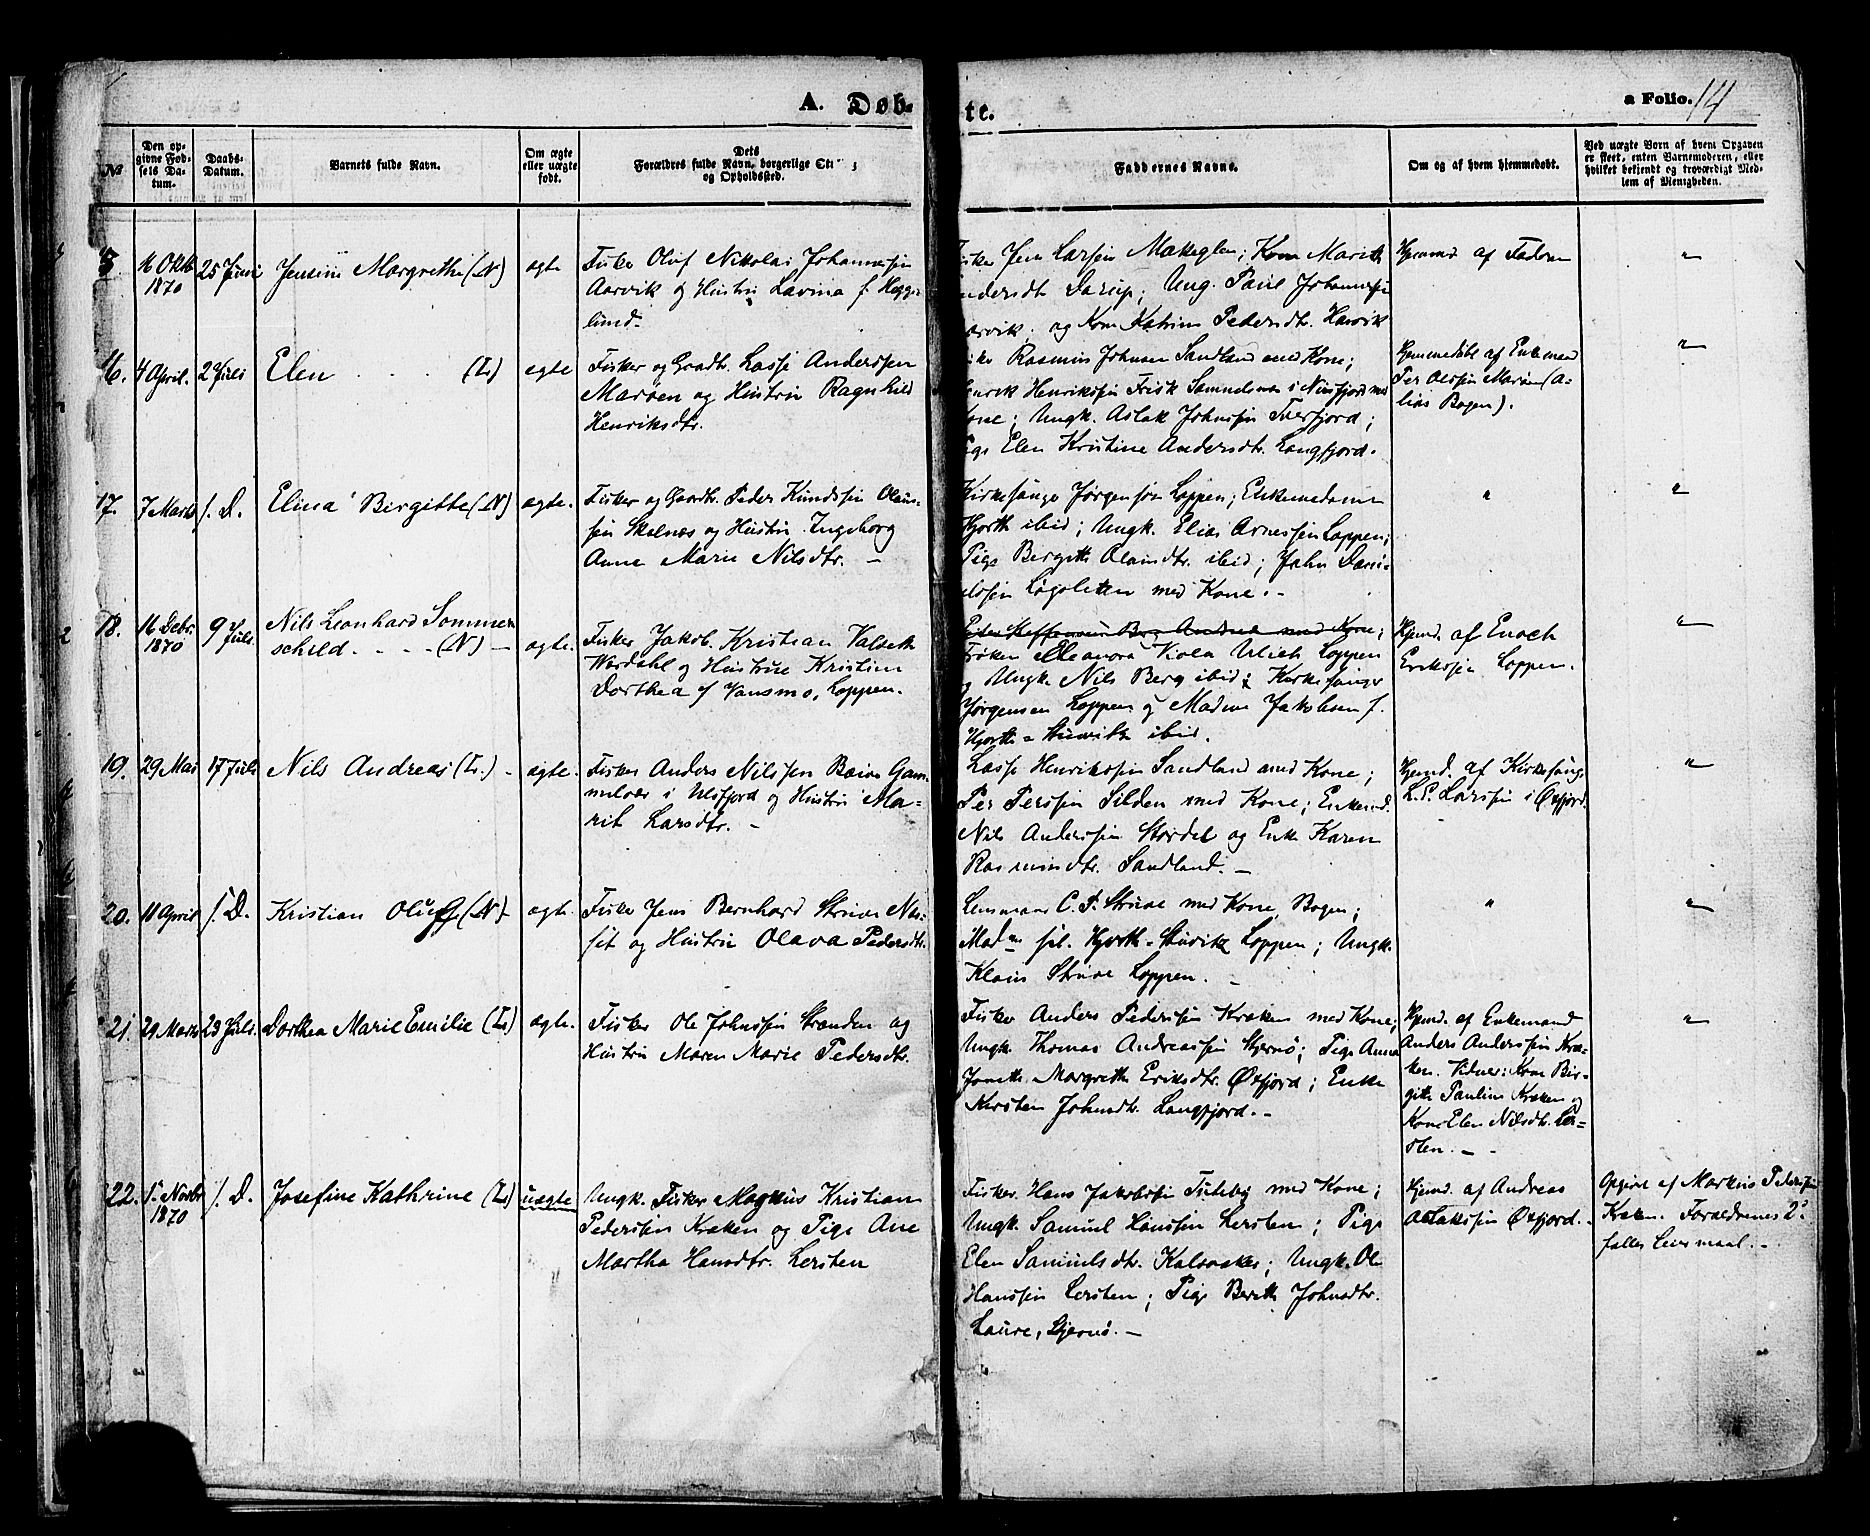 A. Døb-
te.
a Folio. 14
№
Den op-
givne Fød-
sels Da-
tum.
Daabs-
Datum.
Barnets fulde Navn.
Om ægte
eller uægte
født.
Dets
Forældres fulde Navn, borgerlige Sti
og Opholdssted.
Faddernes Navne.
Om og af hvem hjemmedøbt.
Ved uægte Børn af hvem Opgaven
er skeet, enten Barnemoderen, eller
hvilket bekjendt og troværdigt Med-
lem af Menigheden.
5
16 Oktb
1870
25 Juni
Jensine Margrethe (N)
ægte
Fisker Oluf Nikolai Johannesen
Aarvik og Hustru Lavina f. Hegge-
lund.
Jens Larsen ; Kone Marith
Ung. Johannesen
og Kone Katrine Pedersdtr. Haavik
Hjemmd af Faderen
"
16.
4 April.
2 Juli
Elen . . . (L)
ægte
Fisker og Gaardb. Lasse Anderssen
Marøen og Hustru Ragnhild
Henriksdtr.
Rasmus Johnsen Sandland med Kone;
Henriksen Frisk i med
Kone; Ungk. Aslak Johnsen Tverfjord;
Pige Elen Kristine Andersdtr. Langfjord.
Hjemmedøbt af Enkemand
Per Olsen Marøen (A-
lias Bogen).
"
17.
7 Marts
s. D.
Elina Birgitte (N)
ægte.
Fisker og Gaardb. Peder Knudssen Olaus-
sen Skalnæs og Hustru Ingeborg
Anne Marie Nilsdtr. –
Kirkesanger Jørgensen Loppen; Enkemadame
Hjorth ibid; Ungk. Elias Arnessen Loppen;
Pige Bergitte ibid; John Dani-
elsen Løgsletten med Kone. –
"
"
18.
16 Debr.
1870
9 Juli
Nils Leonhard Sommer
schild. . . . . (N) –
ægte.
Fisker Jakob Kristian Valseth
Wordahl og Hustrue Kristine
Dorthea f. Jansmo, Loppen.
Peder Steffensen Berg Andnes med Kone;
Frøken Eleanora Viola Ulich Loppen
og Ungk. Nils Berg ibid; Kirkesanger
Jørgensen Loppen og Madme Jakobsen f.
Hjorth – ibid.
Hjemd. af Enoch
Eriksen Loppen.
"
19.
29 Mai
17 Juli
Nils Andreas (L.) –
ægte.
Fisker Anders Nilssen Gam-
melvær i Ulsfjord og Hustru Ma-
rit Larsdtr. –
Lasse Henriksen Sandland med Kone;
Per Persen Silden med Kone; Enkemd.
Nils Anderssen Stordal og Enke Karen
Rasmusdtr. Sandland. –
Hjemd. af Kirkesang.
L.P. Larssen i Øxfjord.
"
20.
11 April
s. D.
Kristian (N) –
ægte.
Fisker Jens Bernhard Struve Næs-
set og Hustru Olava Pedersdtr.
Lensmand C. P. Struve med Kone, Bogen;
Mad. Hjorth – Loppen; Ungk.
Klaus Struve Loppen. –
"
"
21.
29 Marts
23 Juli.
Dorthea Marie Emilie (L)
ægte.
Fisker Ole Johnssen Stranden og
Hustru Maren Marie Pedersdtr.
Fisker Anders Pedersen Kraken med Kone;
Ungk. Thomas Andreassen Stjernø; Pige Anna
Margrethe Eriksdtr. Øxfjord; Enke
Kersten Johnsdtr. Langfjord. –
Hjemd. af Enkemand
Anders Anderssen Kra-
ken. Vidner: Kone Bir-
gitte Pauline Kraken og
Kone Elen Nilsdtr. Ler-
sten. –
"
22.
1. Novbr
1870
s. D.
Josefine Kathrine (L)
uægte
Ungk. Fisker Magnus Kristian
Pedersen Kraken og Pige Ane
Martha Hansdtr. Lersten
Fisker Hans Jakobsen med Kone;
Ungk. Samuel Hanssen Lersten; Pige
Elen Samuelsdtr. Kalvaaker; Ungk. Ole
Hanssen Lersten; Pige Berith Johnsdtr.
Laure, Stjernø. –
Hjemd. af Andreas
Aslakssen Øxfjord. –
Opgivet af Markus Pedersen
Kraken. Forældrenes 2.
falles Leiermaal. –